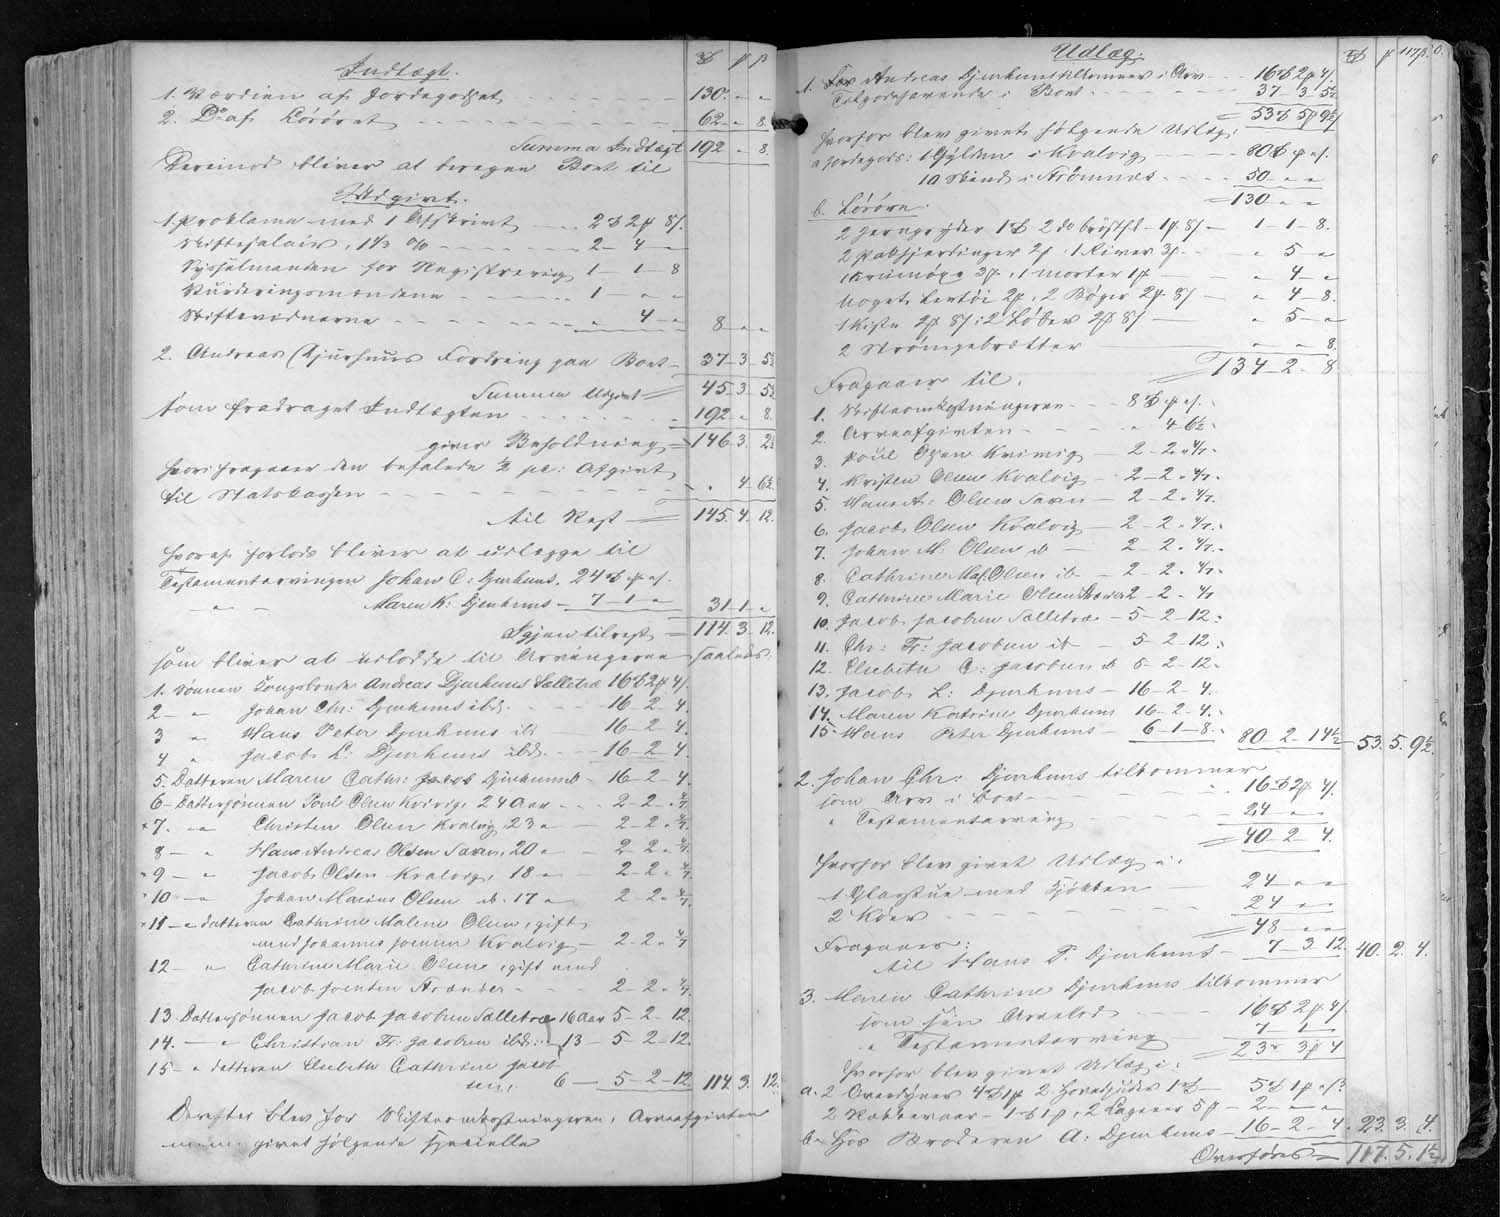 Indtægt.
₰ p β
1. Værdien af Jordegodset 130. " "
2. Do af Løsøret 62 " 8.
Summa Indtægt 192 " 8.
Derimod bliver at beregne Boet til
Udgivt.
1. Proklama med 1 Afskrivt 2 2 8
Skiftesalair, 1⅓ % 2 - 4 -
Sysselmanden for Registrering 1 - 1 - 8
Vurderingsmændene 1 - " "
Skiftevidnerne " 4 " 8 " "
2. Andreas Djurhuus Fordring paa Boet 37 - 3 - 5½
Summa Udgivt 45 - 3 - 5½
som fradraget Indtægten 192 " 8.
giver Beholdning 146. 3. 2½
hvori fragaaer den befalede ½ pc: Afgivt
til Statskassen " 4 - 6½
til Rest 145. 4. 12.
hvoraf forlods bliver at udlægge til
Testamentarvingen Johan C: Djurhuus. 24
" " Maren K: Djurhuus 7 - 1 - " 31 1 "
Igjen tilrest 114. 3. 12.
som bliver at udlodde til Arvingerne saaledes:
1. Sønnen Kongsbonde Andreas Djurhuus Sælletræ 16 2 4
2 - " Johan Chr: Djurhuus ibd. 16 - 2 - 4
3 " Hans Peter Djurhuus ib 16 - 2 4.
4 " Jacob L. Djurhuus ibd. 16 - 2 4
5. Datteren Maren Cathr: Djurhuus ib 16 - 2 - 4
6 - Dattersønnen Poul Olsen Kvivig 24 Aar 2 - 2 - " 4/7
7. " " Christen Olsen Kvalvig, 23 " 2 - 2 " 4/7
8 - " Hans Andreas Olsen Saxen, 20 " 2 - 2 " 4/7
9 - " Jacob Olsen Kvalvig, 18 " 2 - 2 " 4/7
10 - " Johan Marius Olsen ib. 17 " 2 - 2 4/7
11 - " datteren Cathrine Malene Olsen, gift
med Johannes Joensen Kvalvig 2 - 2 " 4/7
12 - " Cathrine Marie Olsen, gift med
Jacob Joensen 2 - 2 " 4/7
13 Dattersønnen Jacob Jacobsen Sælletræ 16 Aar 5 - 2 - 12.
14. - " Christian Fr: Jacobsen ibd: 13 - 5 - 2 - 12.
15 - " datteren Elsebeth Cathrine Jacob
sen, 6 - 5 - 2 - 12. 114. 3. 12.
Derefter blev for Skifteomkostningerne, Arveafgivten
givet følgende specielle
Udlæg.
117
1. For Andreas Djurhuus tilkommer i Arv 16 2 4
Tilgodehavende i Boet 37. 3. 5½
53 5 9½
hvorfor blev givet følgende Udlæg:
a Jordegods: 1 Gylden i Kvalvig 80
10 Skind i Strømnæs 50 " "
130 " "
b. Løsøre:
2 Jerngryder 1 2 do brøstfl. 1 8 1 - 1 - 8.
2 1 River 3 " 5 - "
1 3, 1 morter 1 " 4 - "
Noget Lertøi 2, 2 Bøger 2 8 " 4 - 8.
1 Kiste 2 8 2 Løber 2 8 " 5 - "
2 " " 8.
134 - 2 - 8
Fragaaer til:
1. Skifteomkostningerne 8
2. Arveafgivten " 4 6½
3. Poul Olsen Kvivig 2 - 2 " 4/7.
4. Kristen Olsen Kvalvig 2 - 2 " 4/7.
5. Hans A: Olsen Saxen 2 - 2 " 4/7.
6. Jacob Olsen Kvalvig 2 - 2 " 4/7.
7. Johan M: Olsen ib 2 - 2 " 4/7.
8. Cathrine Mal: Olsen ib 2 - 2 " 4/7.
9. Cathrine Marie Olsen 2 - 2 " 4/7
10. Jacob Jacobsen Sælletræ 5 - 2 - 12.
11. Chr: Fr: Jacobsen ib 5 - 2 - 12.
12. Elsebeth C: Jacobsen ib 5 - 2 - 12.
13. Jacob L: Djurhuus 16 - 2 - 4.
14. Maren Katrine Djurhuus 16 - 2 - 4.
15. Hans Peter Djurhuus 6 - 1 - 8. 80 - 2 - 14½ 53. 5. 9½
2. Johan Chr: Djurhuus tilkommer
som Arv i boet 16 2 4
" Testamentarving 24 " "
40 - 2 - 4.
hvorfor blev givet Udlæg i:
1 Glasstue med Kjøkken 24 " "
2 Køer 24 " "
48 " "
Fragaaer:
til Hans P. Djurhuus 7 - 3 12. 40. 2. 4.
3. Maren Cathrine Djurhuus tilkommer
som sin Arvelod 16 2 4
" Testamentarving 7 1 -
23 3 4
hvorfor blev givet Udlæg i:
a. 2 Overdyner 4 1 2 Hovedpuder 1 5 1
2 1 1, 2 Lagener 5 2 - " "
b. Hos Broderen A: Djurhuus 16 - 2 - 4. 23. 3. 4.
Overføres 117. 5. 1½